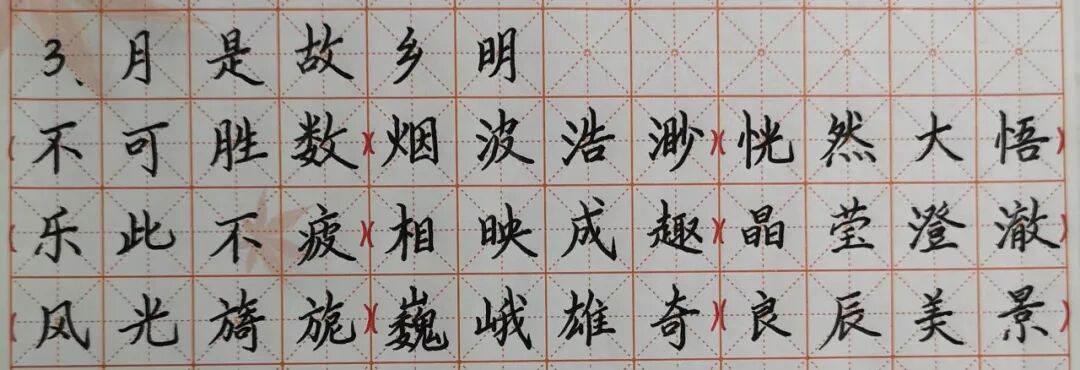 3、月是故乡明
(不可胜数)(烟波浩渺)(恍然大悟)
(乐此不疲)(相映成趣)(晶莹澄澈)
(风光旖旎)(巍峨雄奇)(良辰美景)